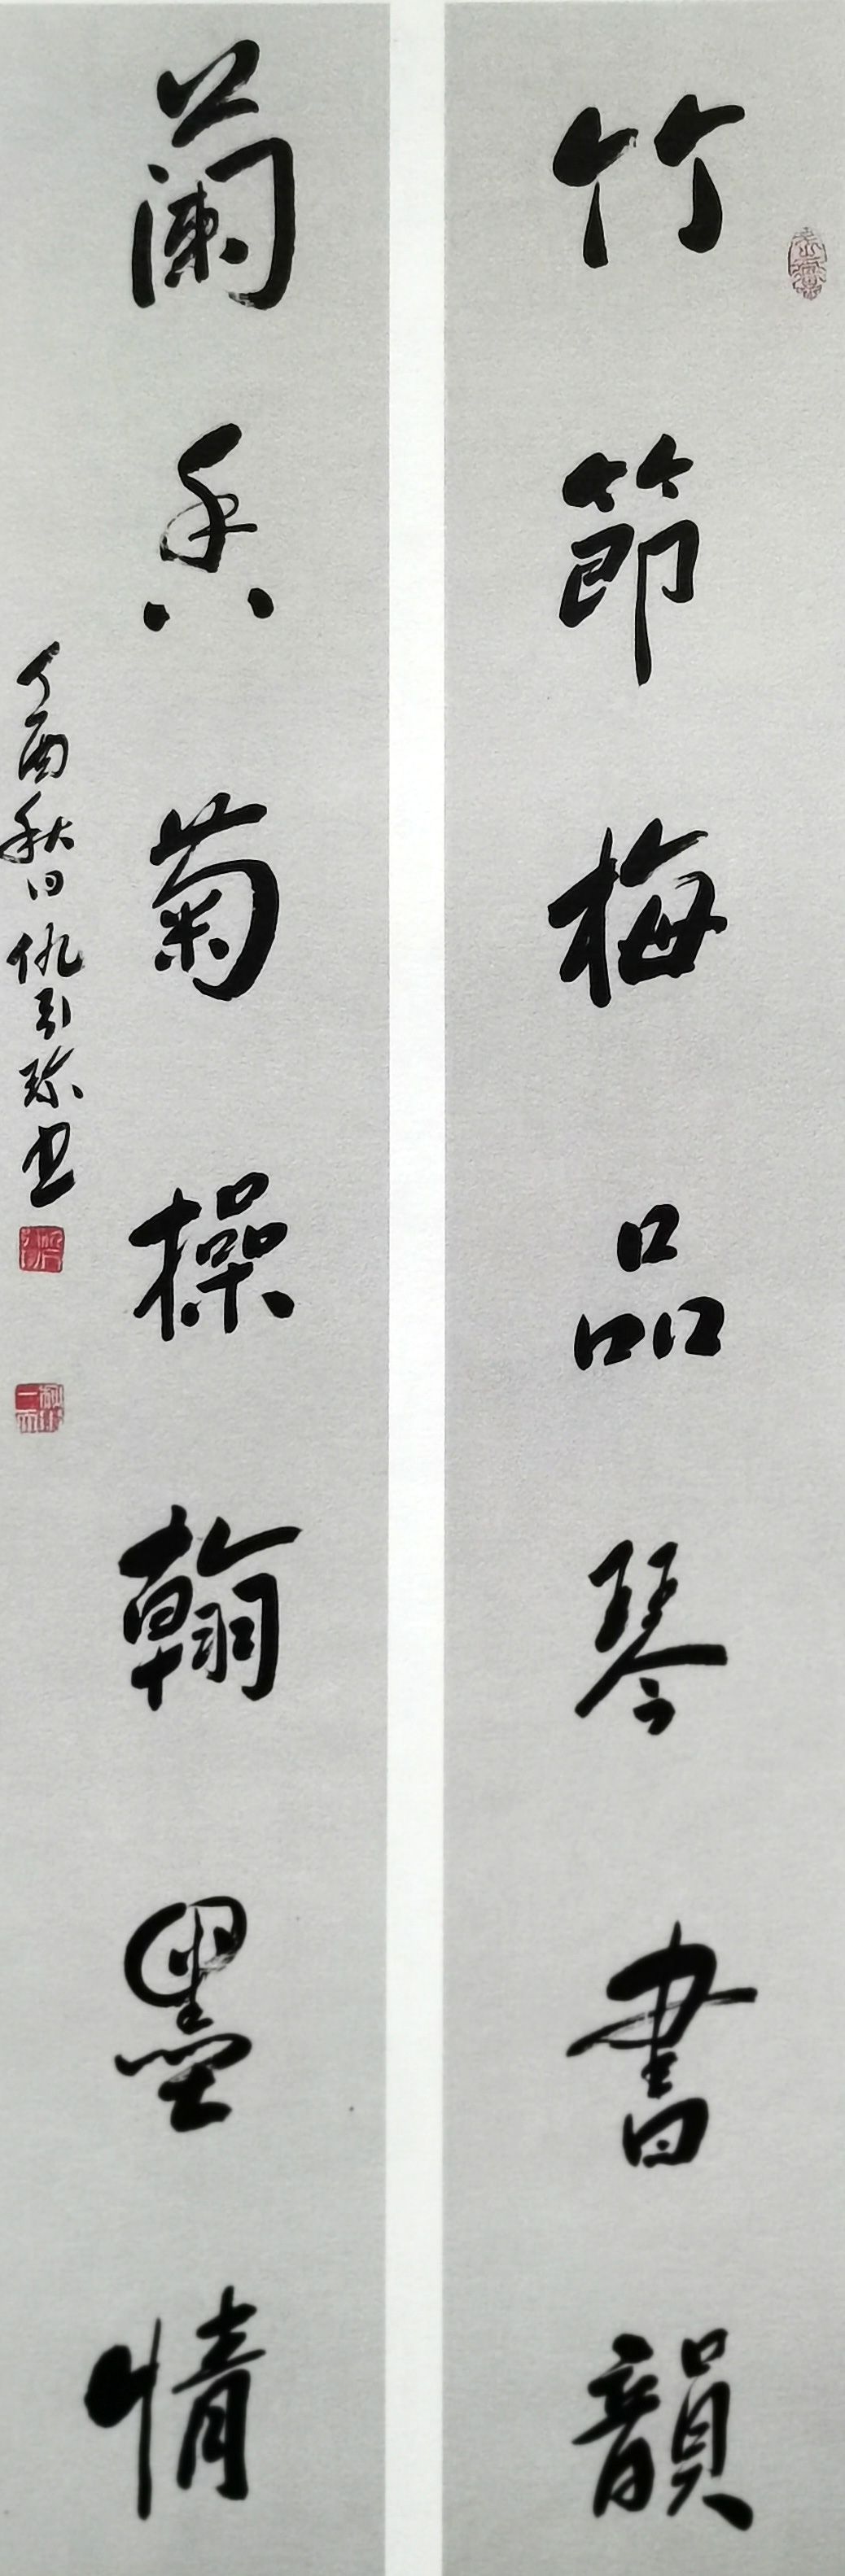 竹節梅品琴書韻
蘭香菊操翰墨情
丁酉秋日仇引珍书